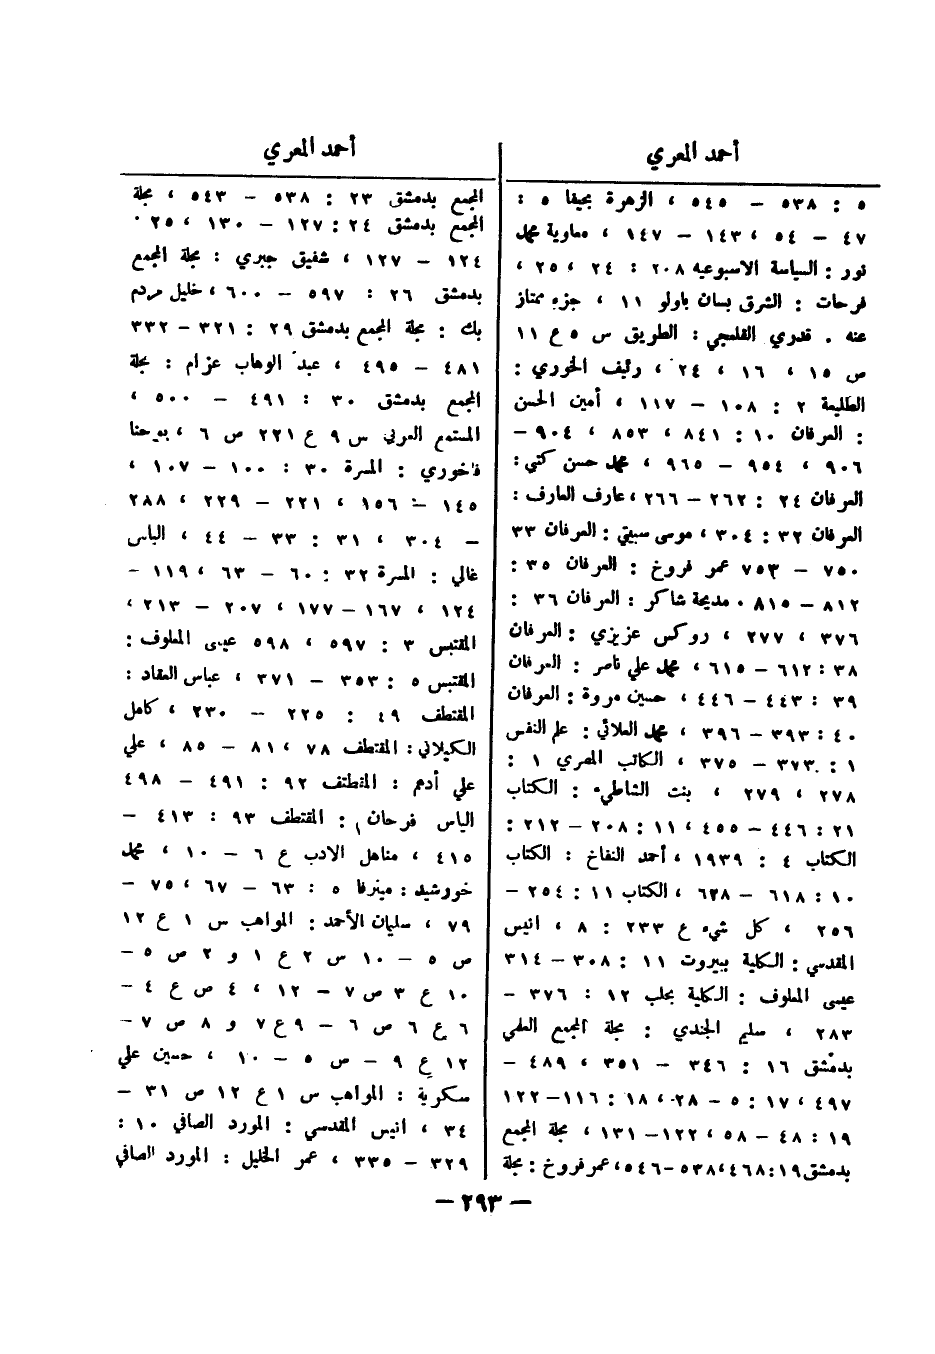 أحمد المعري
٥ : ٥٣٨ – ٥٤٥ ، الزهرة بحيفا ٥ :
٤٧ – ٥٤ ، ١٤٣ – ١٤٧ ، معاوية محمد
نور : السياسة الاسبوعيه ٢٠٨ : ٢٤ ، ٢٥ ،
فرحات : الشرق بسان باولو ١١ ، جزء ممتاز
عنه . قدري القلعجي : الطريق س ٥ ع ١١
ص ١٥ ، ١٦ ، ٢٤ ، رئيف الخوري :
الطليعة ٢ : ١٠٨ – ١١٧ ، أمين الحسن
: العرفان ١٠ : ٨٤١ ، ٨٥٣ ، ٩٠٤ –
٩٠٦ ، ٩٥٤ – ٩٦٥ ، محمد حسن كتبي :
العرفان ٢٤ : ٢٦٢ – ٢٦٦ ، عارف العارف :
العرفان ٣٢ : ٣٠٤ ، موسى سبيتي : العرفان ٣٣
٧٥٠ – ٧٥٣ عمر فروخ : العرفان ٣٥ :
٨١٢ – ٨١٥ . مديحة شاكر : العرفان ٣٦ :
٣٧٦ ، ٢٧٧ ، روكس عزيزي : العرفان
٣٨ : ٦١٢ – ٦١٥ ، محمد علي ناصر : العرفان
٣٩ : ٤٤٣ – ٤٤٦ ، حسين مروة : العرفان
٤٠ : ٣٩٣ – ٣٩٦ ، محمد العلائي : علم النفس
١ : ٣٧٣ – ٣٧٥ ، الكاتب المصري ١ :
٢٧٨ ، ٢٧٩ ، بنت الشاطيء : الكتاب
٢١ : ٤٤٦ – ٤٥٥ ، ١١ : ٢٠٨ – ٢١٢ :
الكتاب ٤ : ١٩٣٩ ، أحمد النفاخ : الكتاب
١٠ : ٦١٨ – ٦٢٨ ، الكتاب ١١ : ٢٥٤ –
٢٥٦ ، كل شيء ع ٢٣٣ : ٨ ، انيس
المقدسي : الكلية ببيروت ١١ : ٣٠٨ – ٣١٤
عيسى المعلوف : الكلية بحلب ١٢ : ٣٧٦ –
٢٨٣ ، سليم الجندي : مجلة المجمع العلمي
بدمشق ١٦ : ٣٤٦ – ٣٥١ ، ٤٨٩ –
٤٩٧ ، ١٧ : ٥ – ٢٨ ، ١٨ : ١١٦ – ١٢٢
١٩ : ٤٨ – ٥٨ ، ١٢٢ – ١٣١ ، مجلة المجمع
بدمشق ١٩ : ٤٦٨ ، ٥٣٨ – ٥٤٦ ، عمر فروخ : مجلة
أحمد المعري
المجمع بدمشق ٢٣ : ٥٣٨ – ٥٤٣ ، مجلة
المجمع بدمشق ٢٤ : ١٢٧ – ١٣٠ ، ٢٥
١٢٤ – ١٢٧ ، شفيق جبري : مجلة المجمع
بدمشق ٢٦ : ٥٩٧ – ٦٠٠ ، خليل مردم
بك : مجلة المجمع بدمشق ٢٩ : ٣٢١ – ٣٣٢
٤٨١ – ٤٩٥ ، عبد الوهاب عزام : مجلة
المجمع بدمشق ٣٠ : ٤٩١ – ٥٠٠ ،
المستمع العربي س ٩ ع ٢٢١ ص ٦ ، يوحنا
فاخوري : المسرة ٣٠ : ١٠٠ – ١٠٧ ،
١٤٥ – ١٥٦ ، ٢٢١ – ٢٢٩ ، ٢٨٨
– ٣٠٤ ، ٣١ : ٣٣ – ٤٤ ، الياس
غالي : المسرة ٣٢ : ٦٠ – ٦٣ ، ١١٩ –
١٢٤ ، ١٦٧ – ١٧٧ ، ٢٠٧ – ٢١٣ ،
المقتبس ٣ : ٥٩٧ ، ٥٩٨ عيسى المعلوف :
المقتبس ٥ : ٣٥٣ – ٣٧١ ، عباس العقاد :
المقتطف ٤٩ : ٢٢٥ – ٢٣٠ ، كامل
الكيلاني : المقتطف ٧٨ ، ٨١ – ٨٥ ، علي
علي أدهم : المقتطف ٩٢ : ٤٩١ – ٤٩٨
الياس فرحان : المقتطف ٩٣ : ٤١٣ –
٤١٥ ، مناهل الادب ع ٦ – ١٠ ، محمد
خورشيد : مينرفا ٥ : ٦٣ – ٦٧ ، ٧٥ –
٧٩ ، سليمان الأحمد : المواهب س ١ ع ١٢
ص ٥ – ١٠ س ٢ ع ١ و ٢ ص ٥ –
١٠ ع ٣ ص ٧ – ١٢ ، ٤ ص ع ٤ –
٦ ع ٦ ص ٦ – ٩ ع ٧ و ٨ ص ٧ –
١٢ ع ٩ – ص ٥ – ١٠ ، حسين علي
سكرية : المواهب س ١ ع ١٢ ص ٣١ –
٣٤ ، انيس المقدسي : المورد الصافي ١٠ :
٣٢٩ – ٣٣٥ ، عمر الخليل : المورد الصافي
– ٢٩٣ –